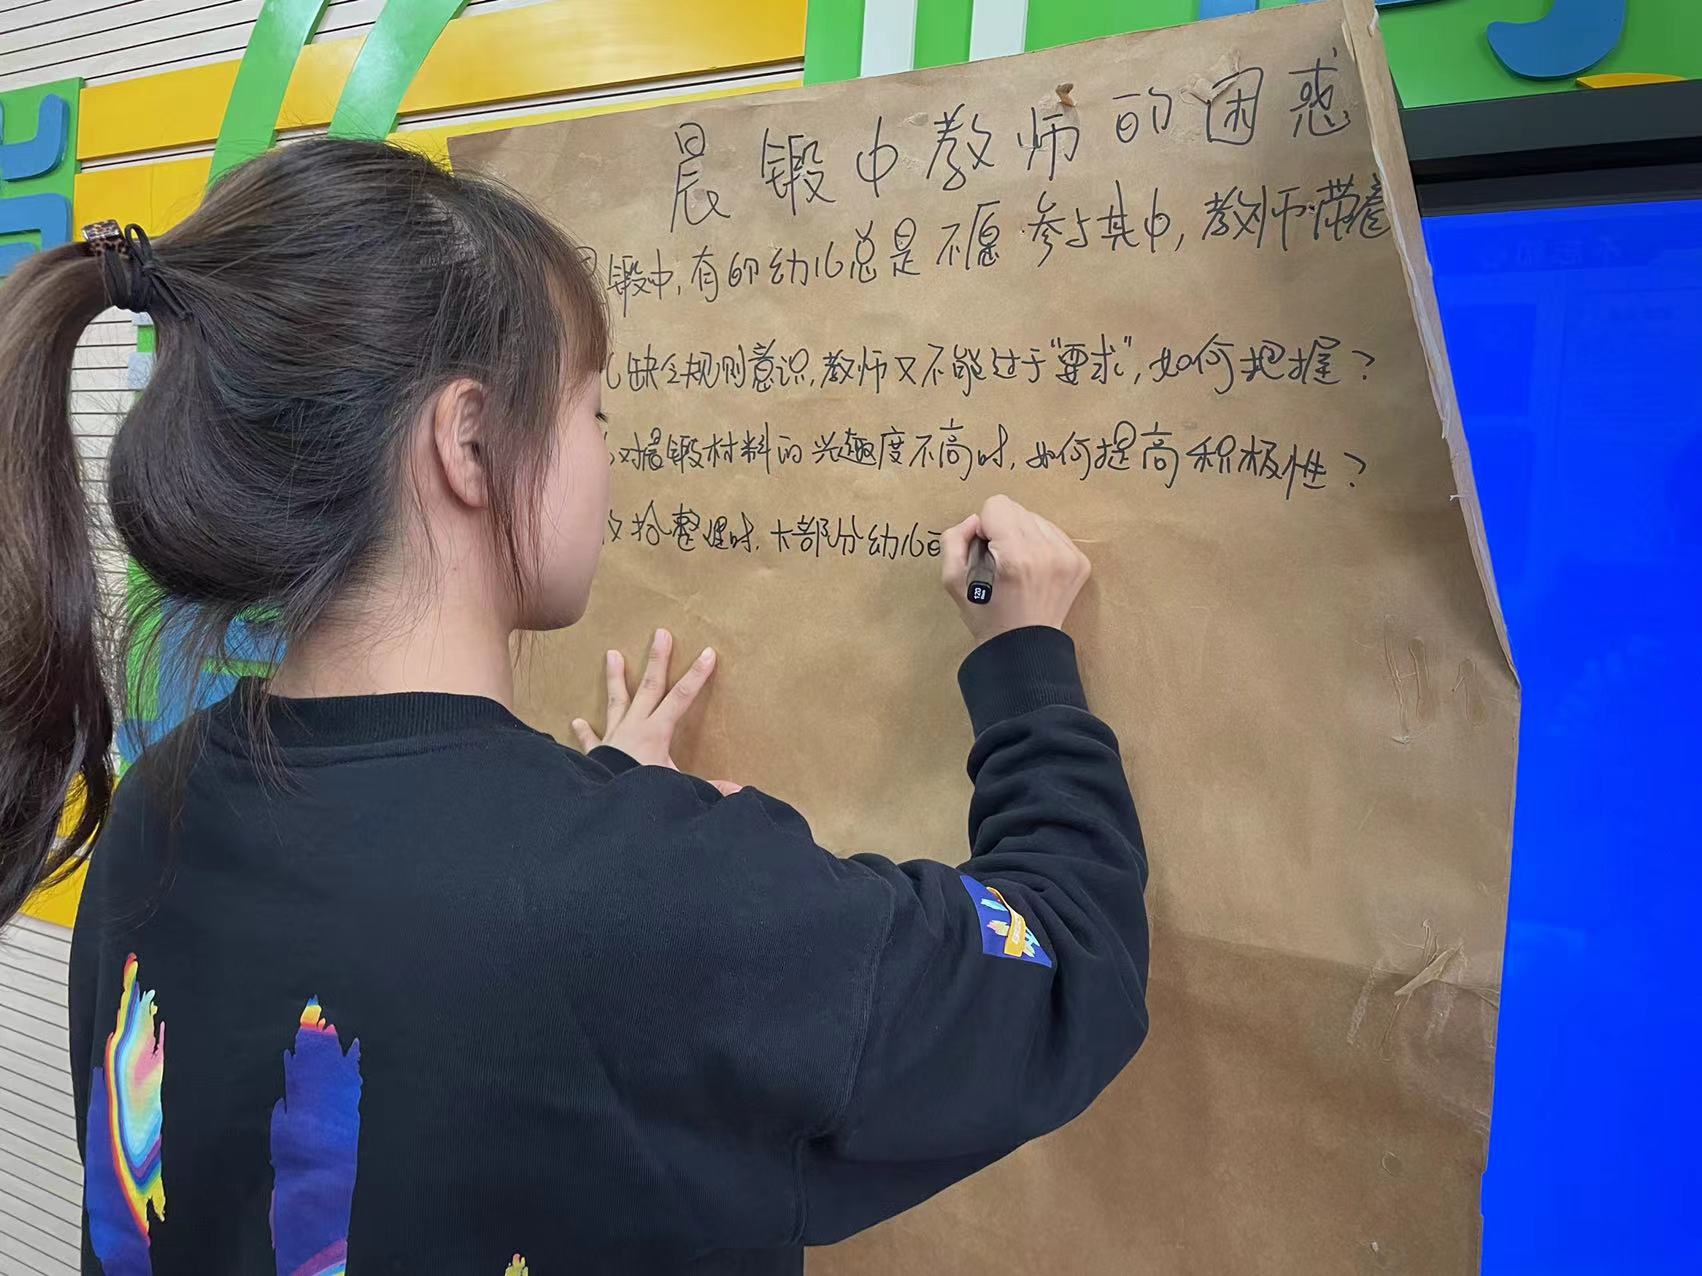 晨锻中教师的困惑
锻中,有的幼儿总是不愿参与其中,教师带着
缺乏规则意识,教师又不能过于"要求",如何把握?
对晨锻材料的兴趣度不高时,如何提高积极性?
收拾整理时,大部分幼儿